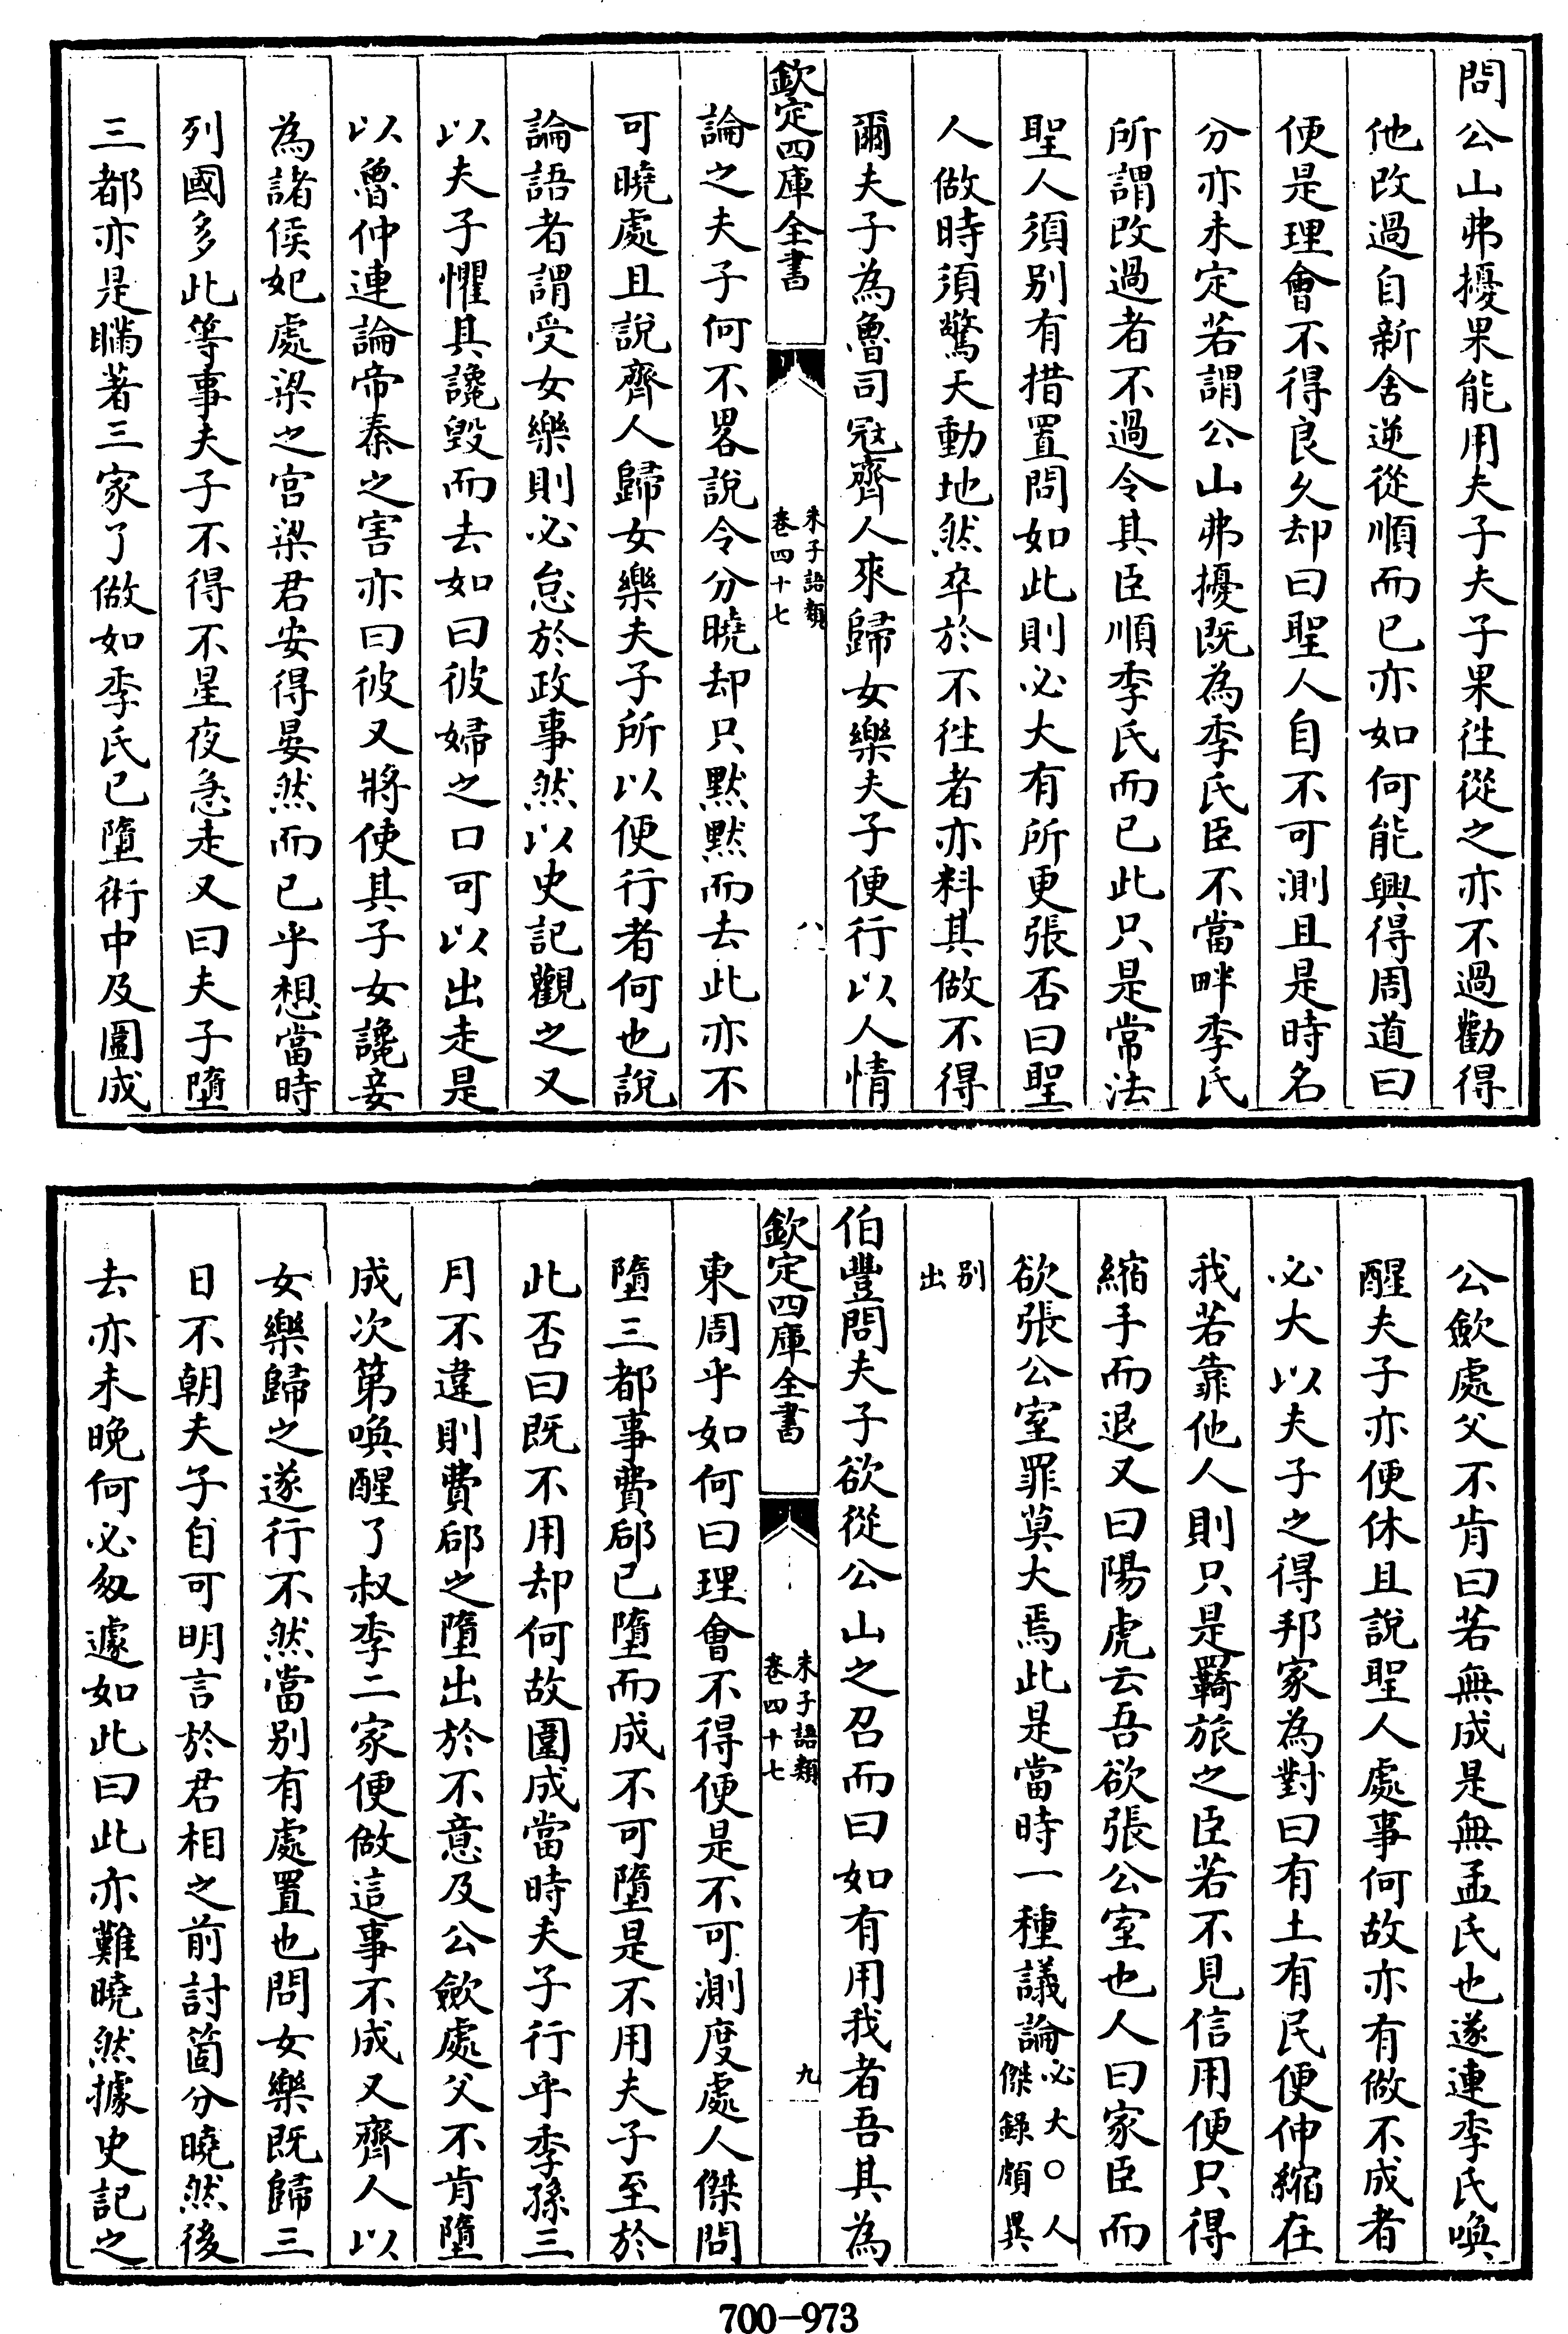 問公山弗擾果能用夫子夫子果往從之亦不過勸得
他改過自新舍逆從順而已亦如何能興得周道曰
便是理會不得良久却曰聖人自不可測且是時名
分亦未定若謂公山弗擾既為季氏臣不當畔季氏
所謂改過者不過令其臣順季氏而已此只是常法
聖人須别有措置問如此則必大有所更張否曰聖
人做時須驚天動地然卒於不徃者亦料其做不得
爾夫子為魯司冦齊人來歸女樂夫子便行以人情
欽定四庫全書
朱子語類
卷四十七
八
論之夫子何不畧說令分曉却只默默而去此亦不
可曉處且說齊人歸女樂夫子所以便行者何也說
論語者謂受女樂則必怠於政事然以史記觀之又
以夫子懼其讒毁而去如曰彼婦之口可以出走是
以魯仲連論帝秦之害亦曰彼又將使其子女讒妾
為諸侯妃處梁之宫梁君安得晏然而已乎想當時
列國多此等事夫子不得不星夜急走又曰夫子墮
三都亦是瞞著三家了做如季氏已墮術中及圍成
公歛處父不肯曰若無成是無孟氏也遂連季氏喚
醒夫子亦便休且說聖人處事何故亦有做不成者
必大以夫子之得邦家為對曰有土有民便伸縮在
我若靠他人則只是羇旅之臣若不見信用便只得
縮手而退又曰陽虎云吾欲張公室也人曰家臣而
欲張公室罪莫大焉此是當時一種議論必大○人
傑錄頗異
别
出
伯豐問夫子欲從公山之召而曰如有用我者吾其為
欽定四庫全書
朱子語類
卷四十七
九
東周乎如何曰理會不得便是不可測度處人傑問
墮三都事費郈已墮而成不可墮是不用夫子至於
此否曰既不用却何故圍成當時夫子行乎季孫三
月不違則費郈之墮出於不意及公歛處父不肯墮
成次第喚醒了叔季二家便做這事不成又齊人以
女樂歸之遂行不然當别有處置也問女樂既歸三
日不朝夫子自可明言於君相之前討箇分曉然後
去亦未晚何必匆遽如此曰此亦難曉然據史記之
700-973